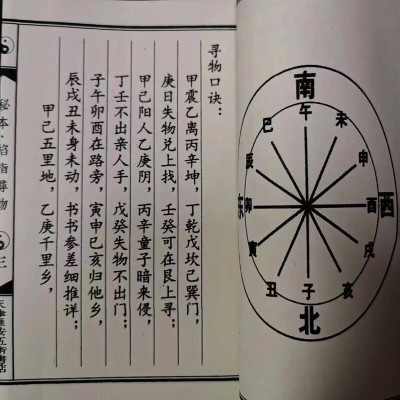 寻物口诀：
甲震乙离丙辛坤，丁乾戊坎己巽门，
庚日失物兑上找，壬癸可在艮上寻；
甲己阳人乙庚阴，丙辛童子暗来侵，
丁壬不出亲人手，戊癸失物不出门；
子午卯酉在路旁，寅申巳亥归他乡，
辰戌丑未身未动，书书参差细推详；
甲己五里地，乙庚千里乡，
秘本·掐指寻物
三
南
午
未
申
酉
西
戌
亥
子
北
丑
寅
卯
东
辰
巳